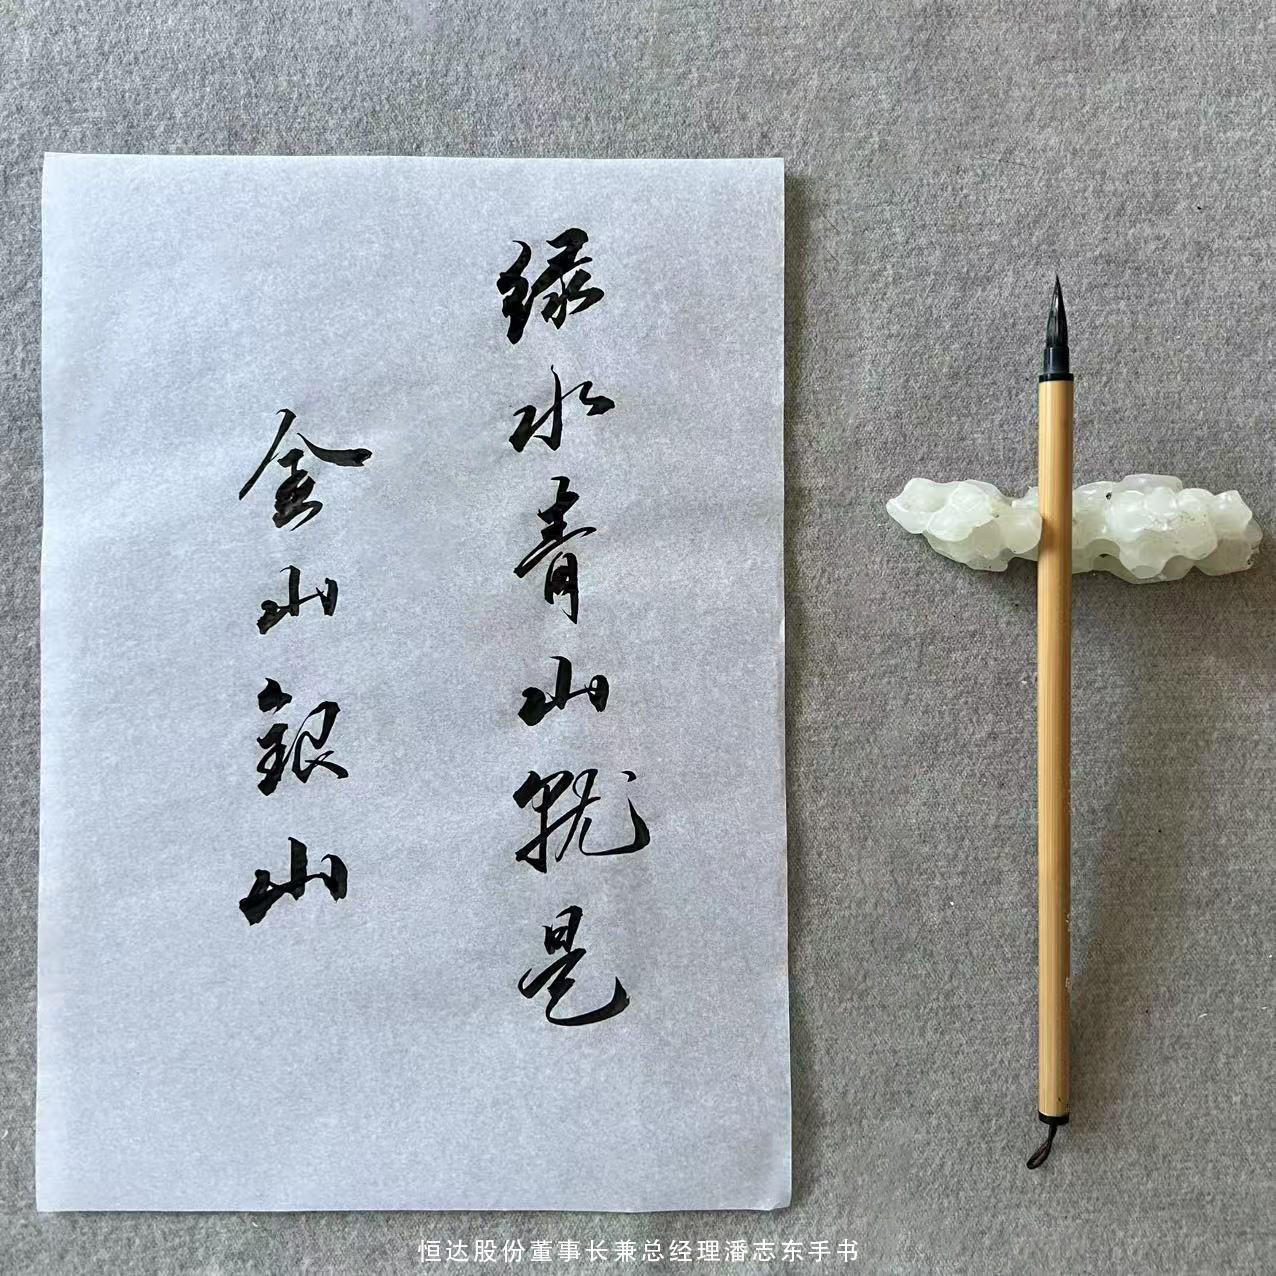 绿水青山就是
金山銀山
恒达股份董事长兼总经理潘志东手书